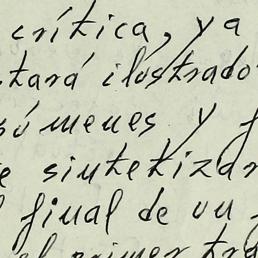 crítica, ya
tará ilustrado
súmenes y f
e sintetizar
l final de un
el primer tra